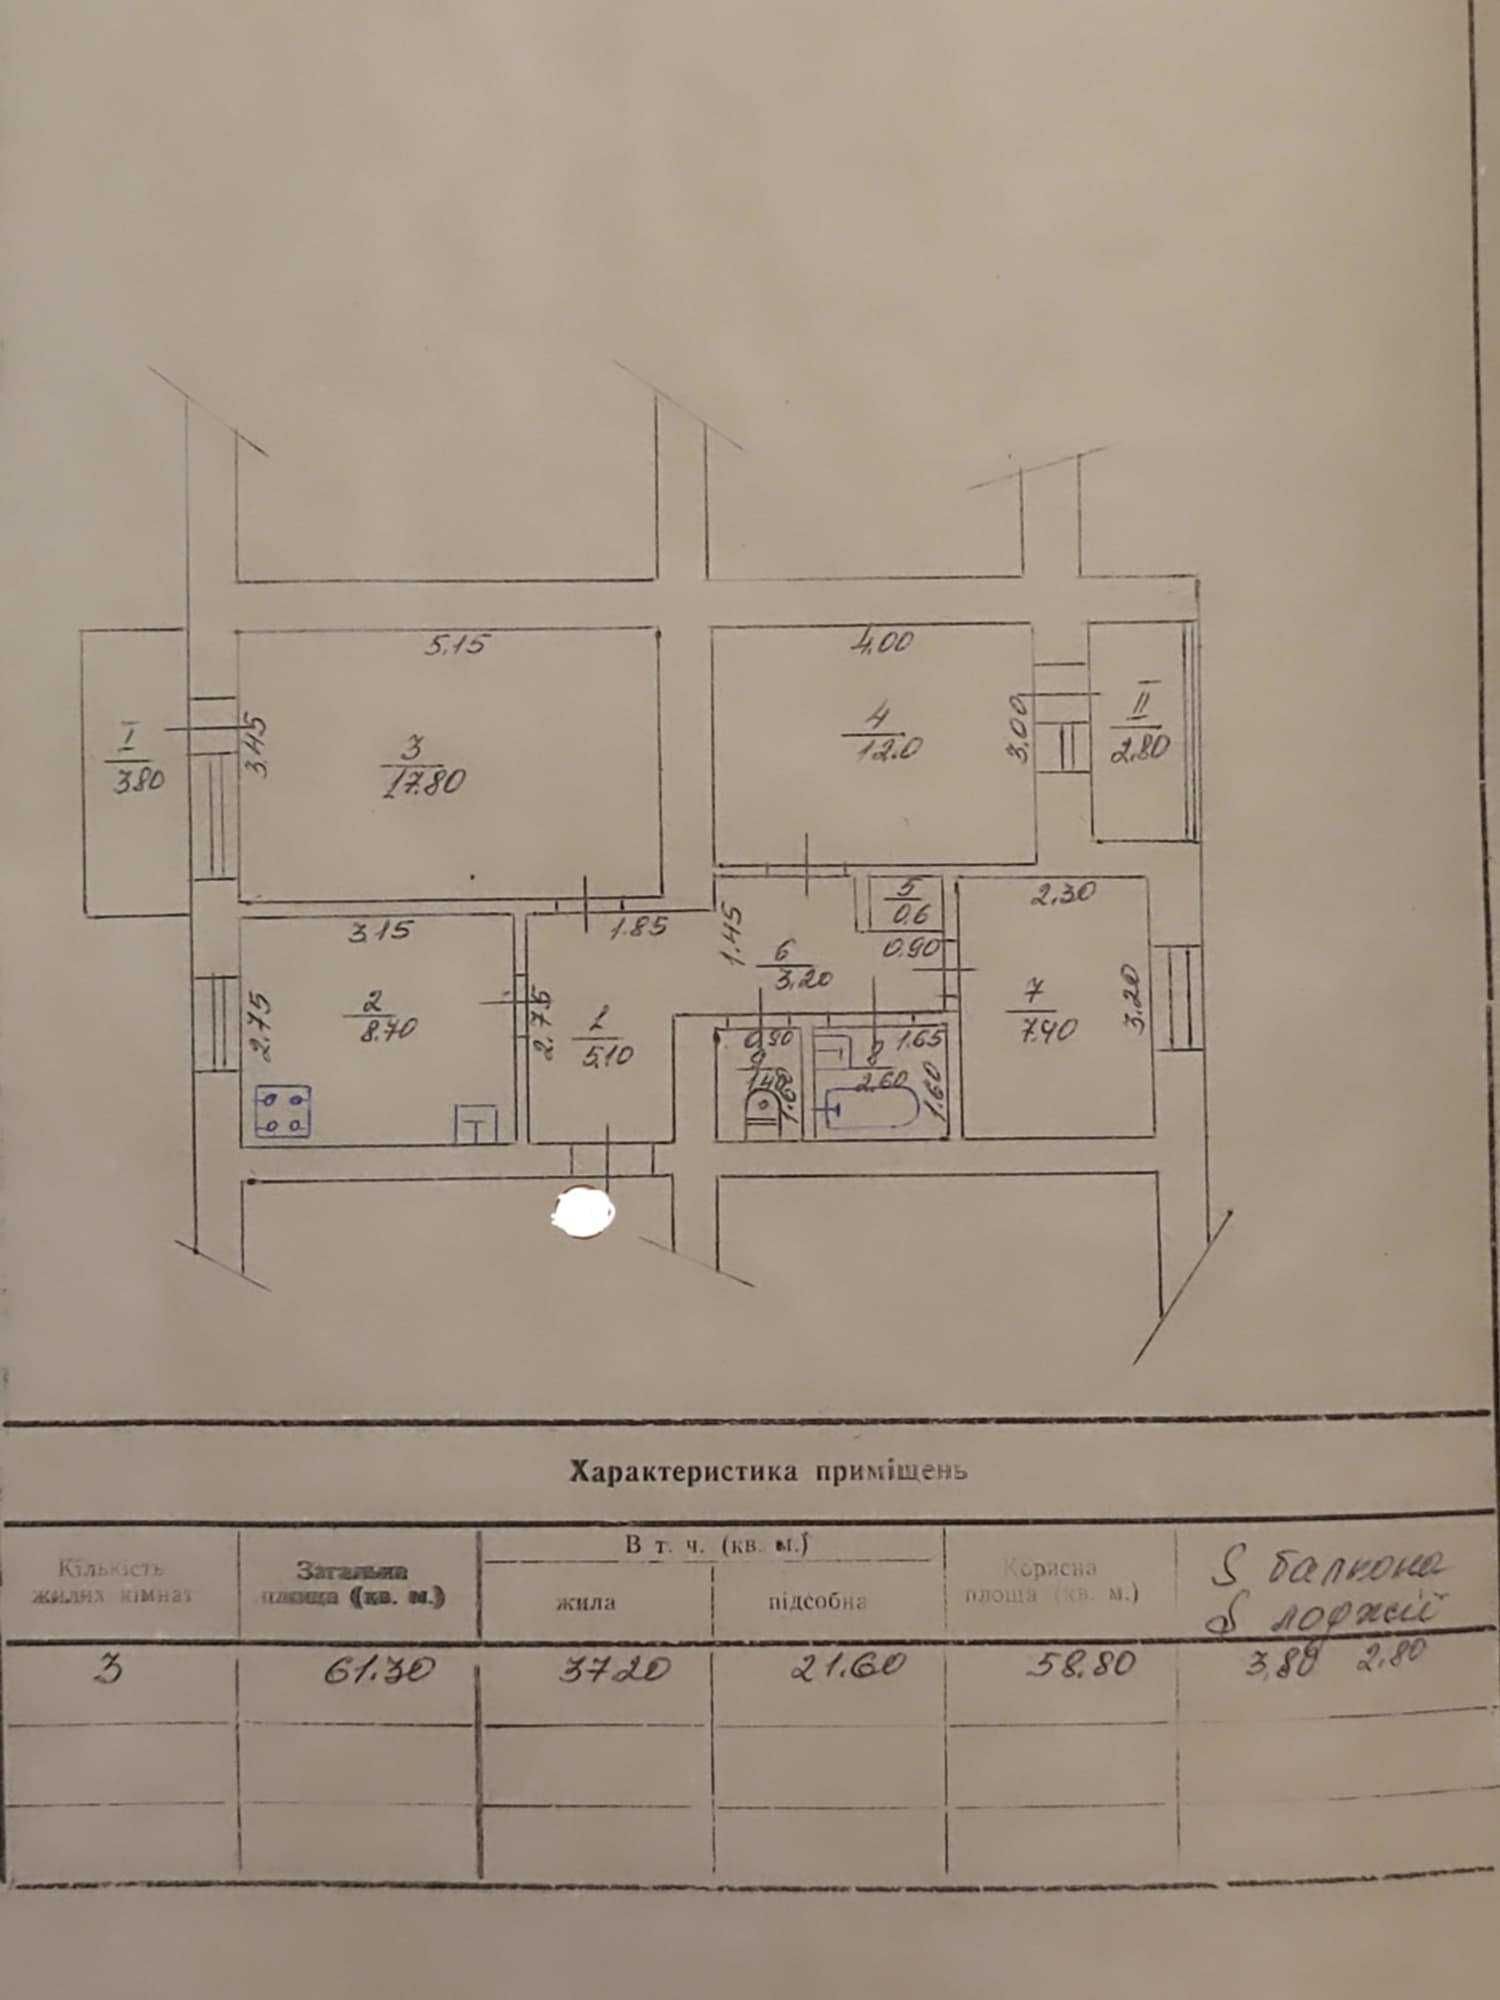 5.15
4.00
I
3.80
3.45
3
17.80
4
12.0
3.00
II
2.80
3.15
1.85
1.45
5
0.6
2.30
0.90
6
3.20
2.75
2
8.70
2.75
1
5.10
7
7.40
3.20
0.90
9
1.40
1.60
8
1.65
2.60
1.60
Характеристика приміщень
Кількість
жилих кімнат
Загальна
площа (кв. м.)
В т. ч. (кв. м.)
жила
підсобна
Корисна
площа (кв. м.)
S балкона
S лоджії
3
61.30
37.20
21.60
58.80
3,80 2,80